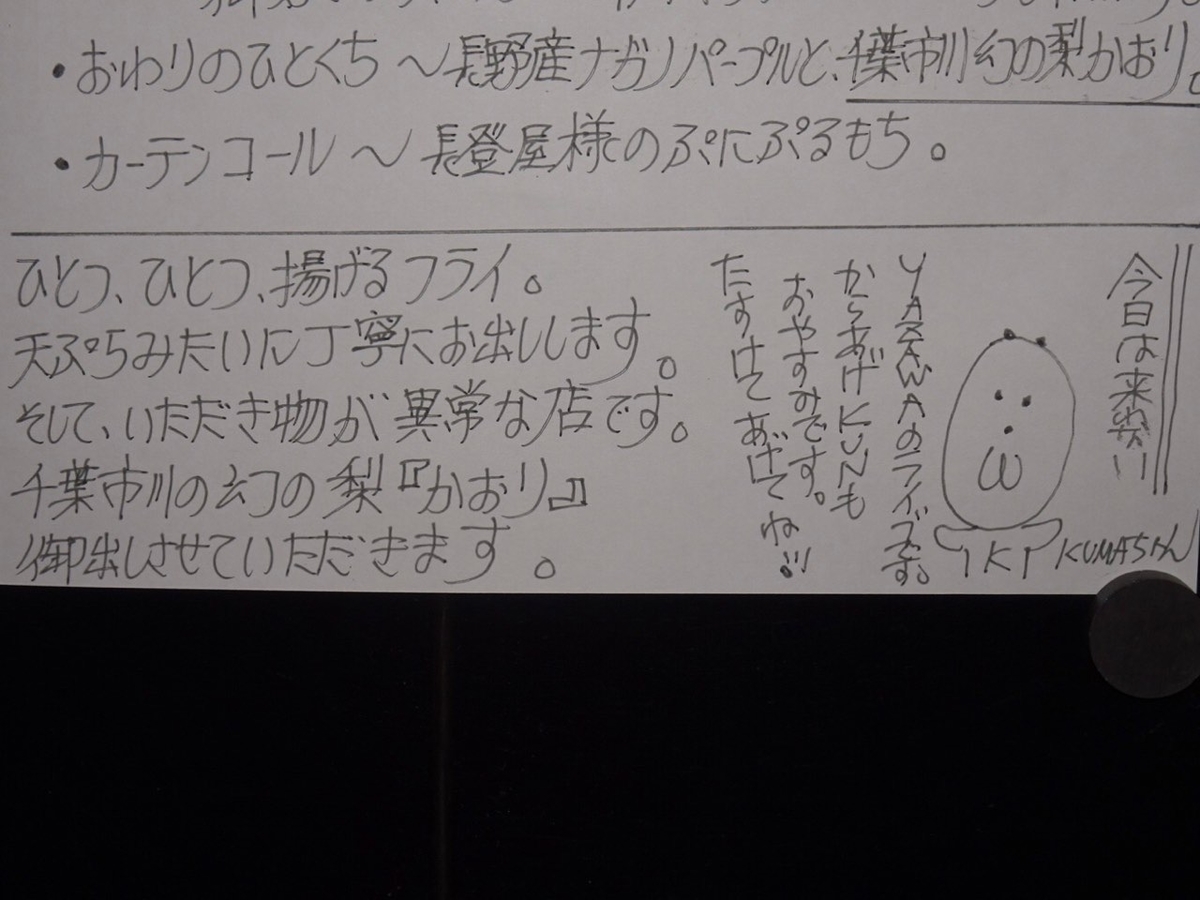 ・おわりのひとくち 〜長野産ナガノパープルと、千葉市川幻の梨かおり。
・カーテンコール 〜 長登屋様のぷにぷるもち。
ひとつ、ひとつ、揚げるフライ。
天ぷらみたいに丁寧にお出しします。
そして、いただき物が異常な店です。
千葉市川の幻の梨『かおり』
御出しさせていただきます。
今日は来ねがい
YAZAWAのフライズです。
からあげKUNも
おやすみです。
たすけてあげてね!!!
IKI KUMASAN